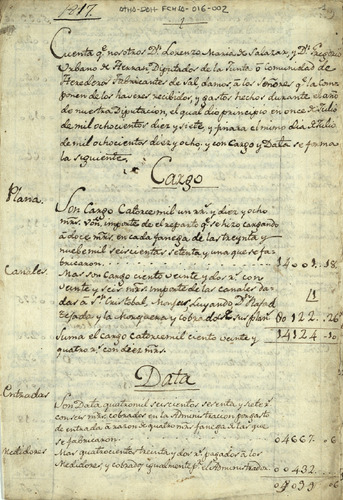 1817.
ATHA-DAH-FCHZO-016-002
Cuenta q.e nosotros D.n Lorenzo Maria de Salazar, y D.n Gregorio
Urbano de Herran Diputados de la Junta ó comunidad de
Herederos Fabricantes de Sal, damos á los Señores q.e la Com
ponen de los haveres recibidos, y gastos hechos durante el año
de nuestra Diputacion, el qual dio principio en once de Julio
de mil ochocientos diez y siete, y finara el mismo dia de Julio
de mil ochocientos diez y ocho, y con Cargo y Data se forma
la siguiente.
Cargo
Plana.
Son Cargo Catorce mil un r.s y diez y ocho
mrs. von. importe de el reparto q.e se hizo cargando
á doce mrs. en cada fanega de las treynta y
nuebe mil seiscientas setenta y una que se fa-
bricaron. 14001..18
Canales.
Mas son Cargo ciento veinte y dos r.s con
veinte y seis mrs. importe de las canales da-
das á S.n Cristobal, Monjas, Luyando, D.n Rafael
Tejada y la Mosquera y cobrados 00122..26
Suma el cargo catorce mil ciento veinte y 14124..10
quatro r.s con diez mrs.
Data
Entradas
Son Data quatro mil seiscientos sesenta y siete r.s
con seis mrs. cobrados en la Administracion por gasto
de entrada á razon de quatro mrs. fanega á las que
se fabricaron. 04667..06
Medidores
Mas quatrocientos treinta y dos r.s pagados á los
Medidores, y cobrados igualmente p.r la Administrac.n 00432
05099..06